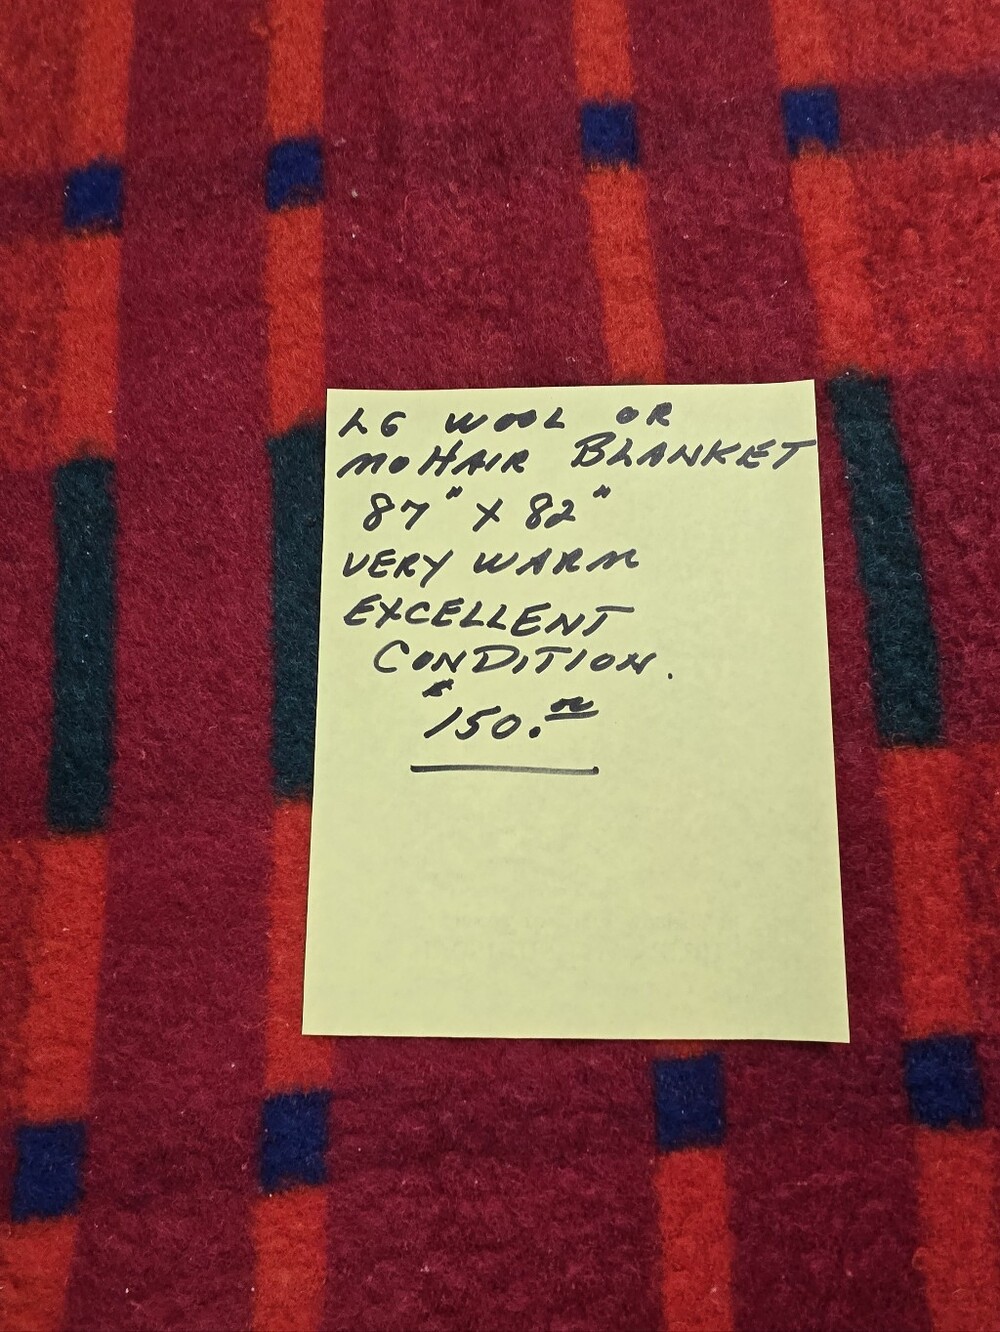 LG WOOL OR
MOHAIR BLANKET
87" X 82"
VERY WARM
EXCELLENT
CONDITION.
$150.00